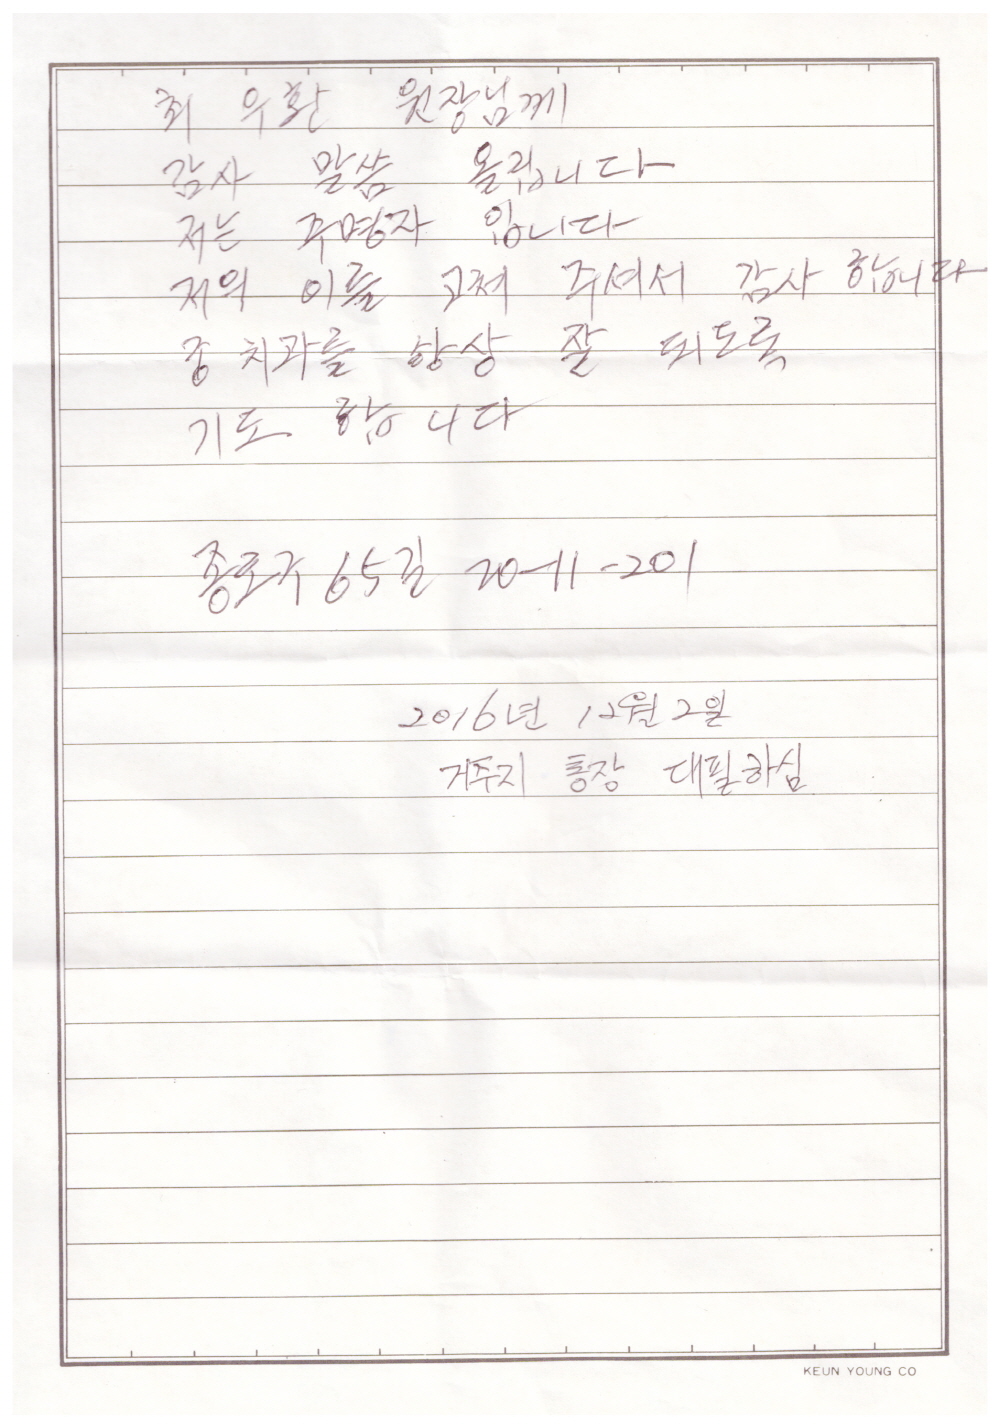 최 우환 원장님께
감사 말씀 올립니다
저는 주명자 입니다
저의 이를 고쳐 주셔서 감사 합니다
중 치과를 항상 잘 되도록
기도 합니다
종로구 65길 20-11-201
2016년 12월 2일
거주지 통장 대필하심
KEUN YOUNG CO